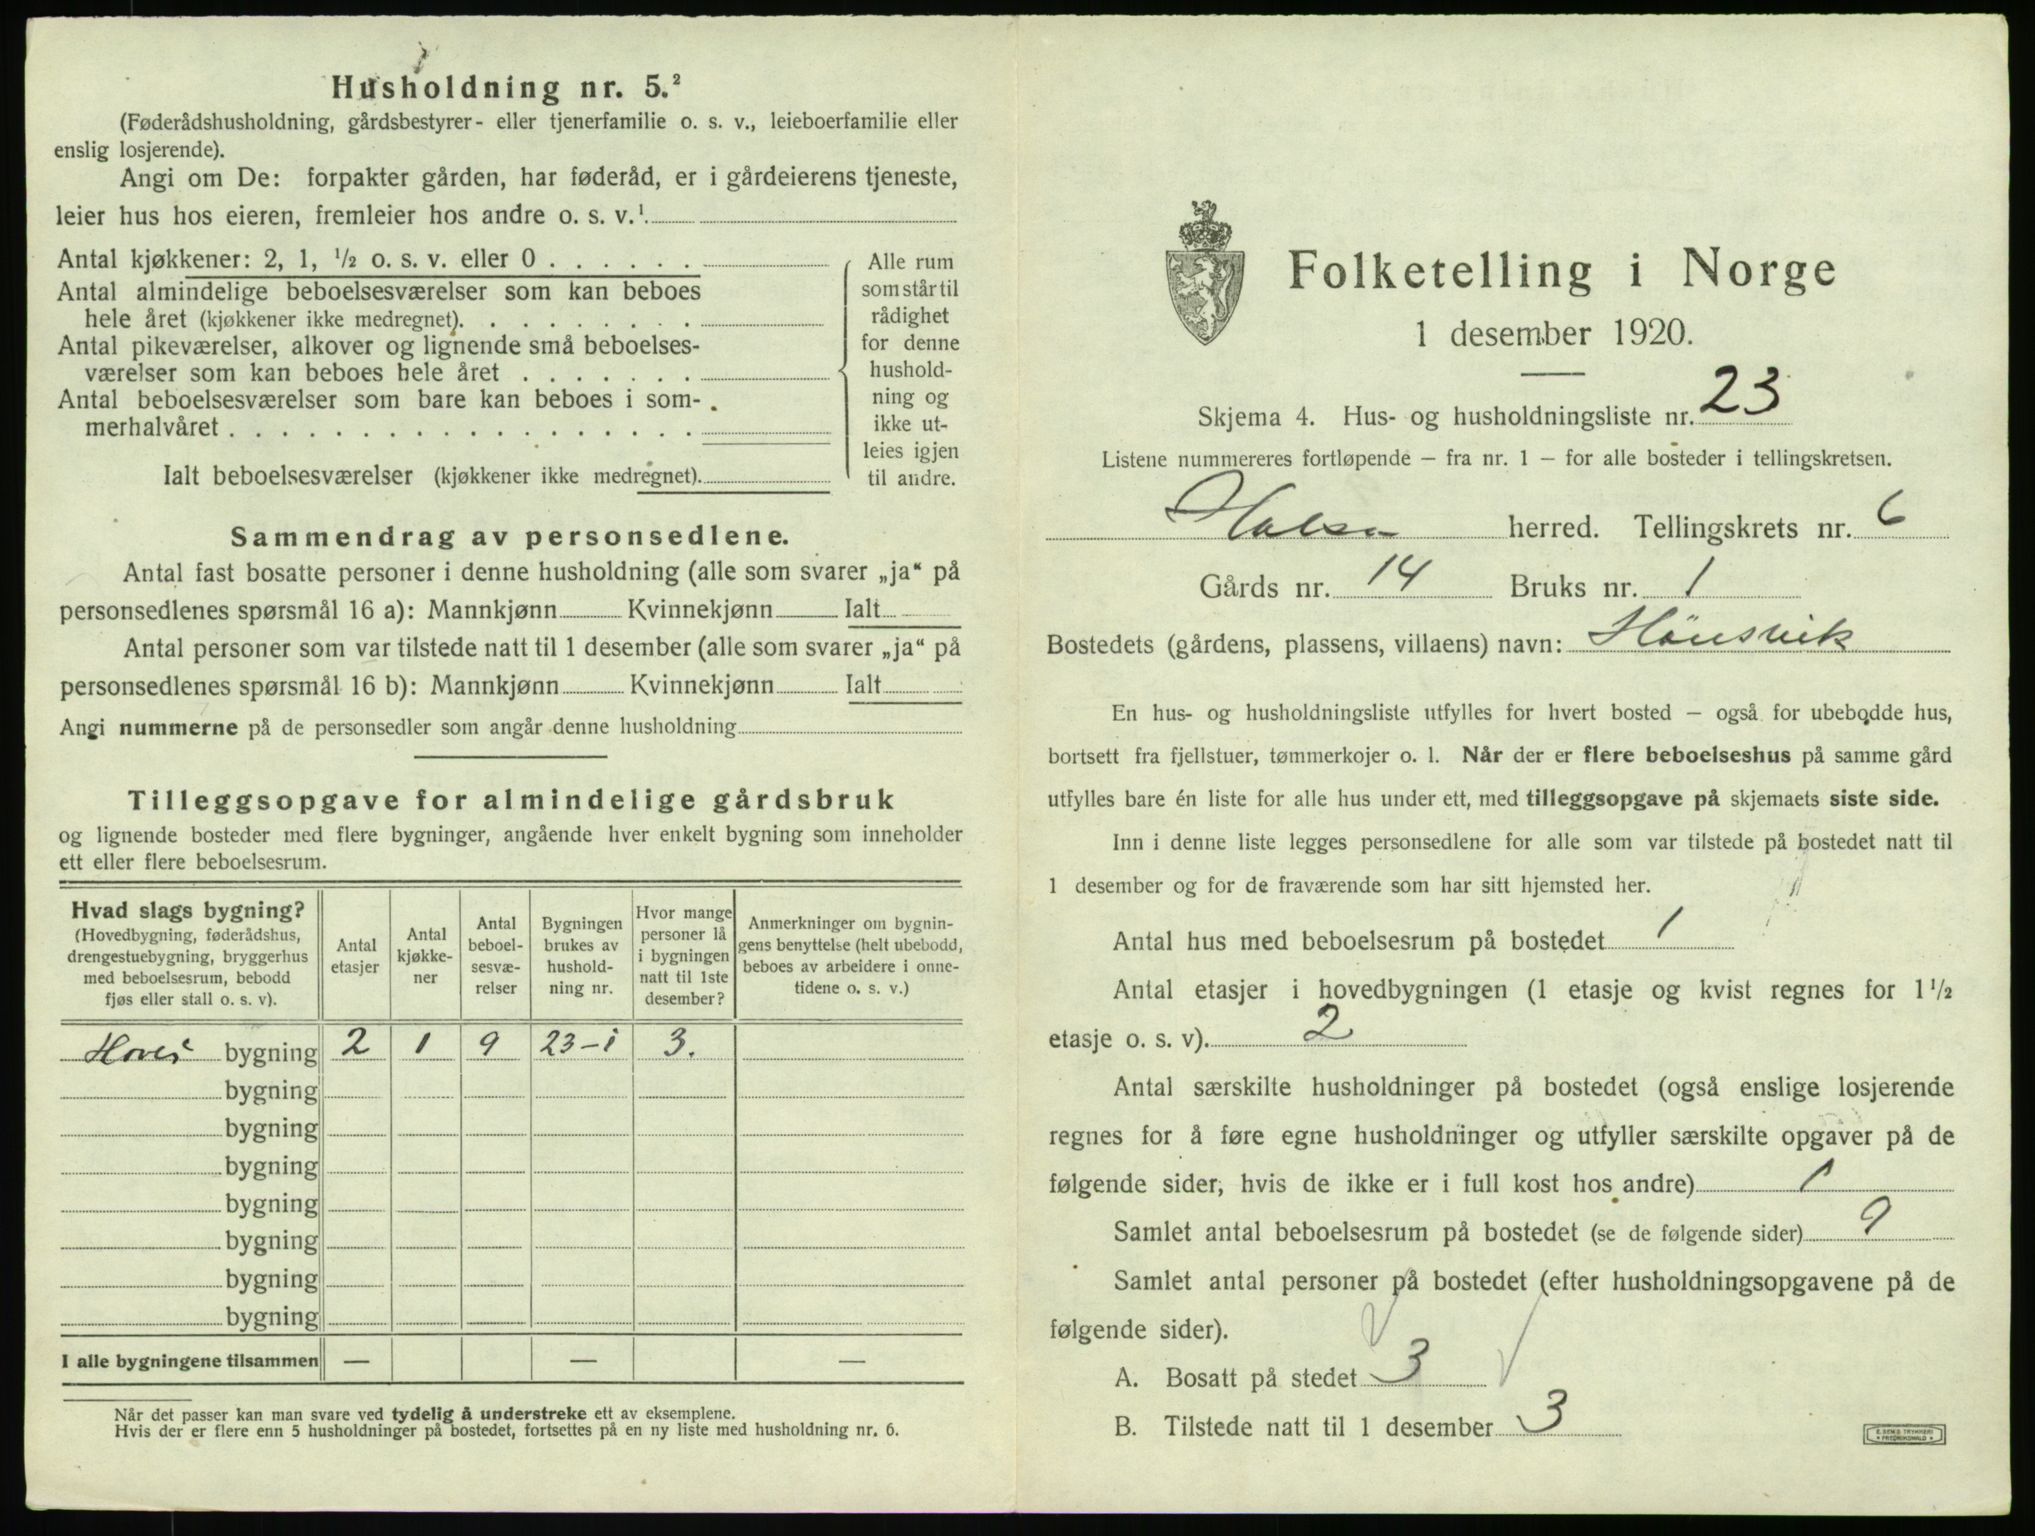 Husholdning nr. 5.²
(Føderådshusholdning, gårdsbestyrer- eller tjenerfamilie o. s. v., leieboerfamilie eller
enslig losjerende).
Angi om De: forpakter gården, har føderåd, er i gårdeierens tjeneste,
leier hus hos eieren, fremleier hos andre o. s. v.¹
Antal kjøkkener: 2, 1, ½ o. s. v. eller 0 . . . . . .
Antal almindelige beboelsesværelser som kan beboes
hele året (kjøkkener ikke medregnet). . . . . . . . .
Antal pikeværelser, alkover og lignende små beboelses-
værelser som kan beboes hele året . . . . . . .
Antal beboelsesværelser som bare kan beboes i som-
merhalvåret . . . . . . . . . . . . . . . . . .
Ialt beboelsesværelser (kjøkkener ikke medregnet).
Alle rum
som står til
rådighet
for denne
hushold-
ning og
ikke ut-
leies igjen
til andre.
Sammendrag av personsedlene.
Antal fast bosatte personer i denne husholdning (alle som svarer „ja“ på
personsedlenes spørsmål 16 a): Mannkjønn Kvinnekjønn Ialt
Antal personer som var tilstede natt til 1 desember (alle som svarer „ja“ på
personsedlenes spørsmål 16 b): Mannkjønn Kvinnekjønn Ialt
Angi nummerne på de personsedler som angår denne husholdning
Tilleggsopgave for almindelige gårdsbruk
og lignende bosteder med flere bygninger, angående hver enkelt bygning som inneholder
ett eller flere beboelsesrum.
Hvad slags bygning?
(Hovedbygning, føderådshus,
drengestuebygning, bryggerhus
med beboelsesrum, bebodd
fjøs eller stall o. s. v).
Antal
etasjer
Antal
kjøkke-
ner
Antal
beboel-
sesvæ-
relser
Bygningen
brukes av
hushold-
ning nr.
Hvor mange
personer lå
i bygningen
natt til 1ste
desember?
Anmerkninger om bygnin-
gens benyttelse (helt ubebodd,
beboes av arbeidere i onne-
tidene o. s. v.)
bygning 2 1 9 23-1 3.
bygning
bygning
bygning
bygning
bygning
bygning
bygning
I alle bygningene tilsammen — — —
Når det passer kan man svare ved tydelig å understreke ett av eksemplene.
Hvis der er flere enn 5 husholdninger på bostedet, fortsettes på en ny liste med husholdning nr. 6.
Folketelling i Norge
1 desember 1920.
Skjema 4. Hus- og husholdningsliste nr. 23
Listene nummereres fortløpende – fra nr. 1 – for alle bosteder i tellingskretsen.
Halsa herred. Tellingskrets nr. 6
Gårds nr. 14 Bruks nr. 1
Bostedets (gårdens, plassens, villaens) navn: Hønsvik
En hus- og husholdningsliste utfylles for hvert bosted – også for ubebodde hus,
bortsett fra fjellstuer, tømmerkojer o. l. Når der er flere beboelseshus på samme gård
utfylles bare én liste for alle hus under ett, med tilleggsopgave på skjemaets siste side.
Inn i denne liste legges personsedlene for alle som var tilstede på bostedet natt til
1 desember og for de fraværende som har sitt hjemsted her.
Antal hus med beboelsesrum på bostedet 1
Antal etasjer i hovedbygningen (1 etasje og kvist regnes for 1½
etasje o. s. v). 2
Antal særskilte husholdninger på bostedet (også enslige losjerende
regnes for å føre egne husholdninger og utfyller særskilte opgaver på de
følgende sider, hvis de ikke er i full kost hos andre) 1
Samlet antal beboelsesrum på bostedet (se de følgende sider) 9
Samlet antal personer på bostedet (efter husholdningsopgavene på de
følgende sider).
A. Bosatt på stedet 3
B. Tilstede natt til 1 desember 3